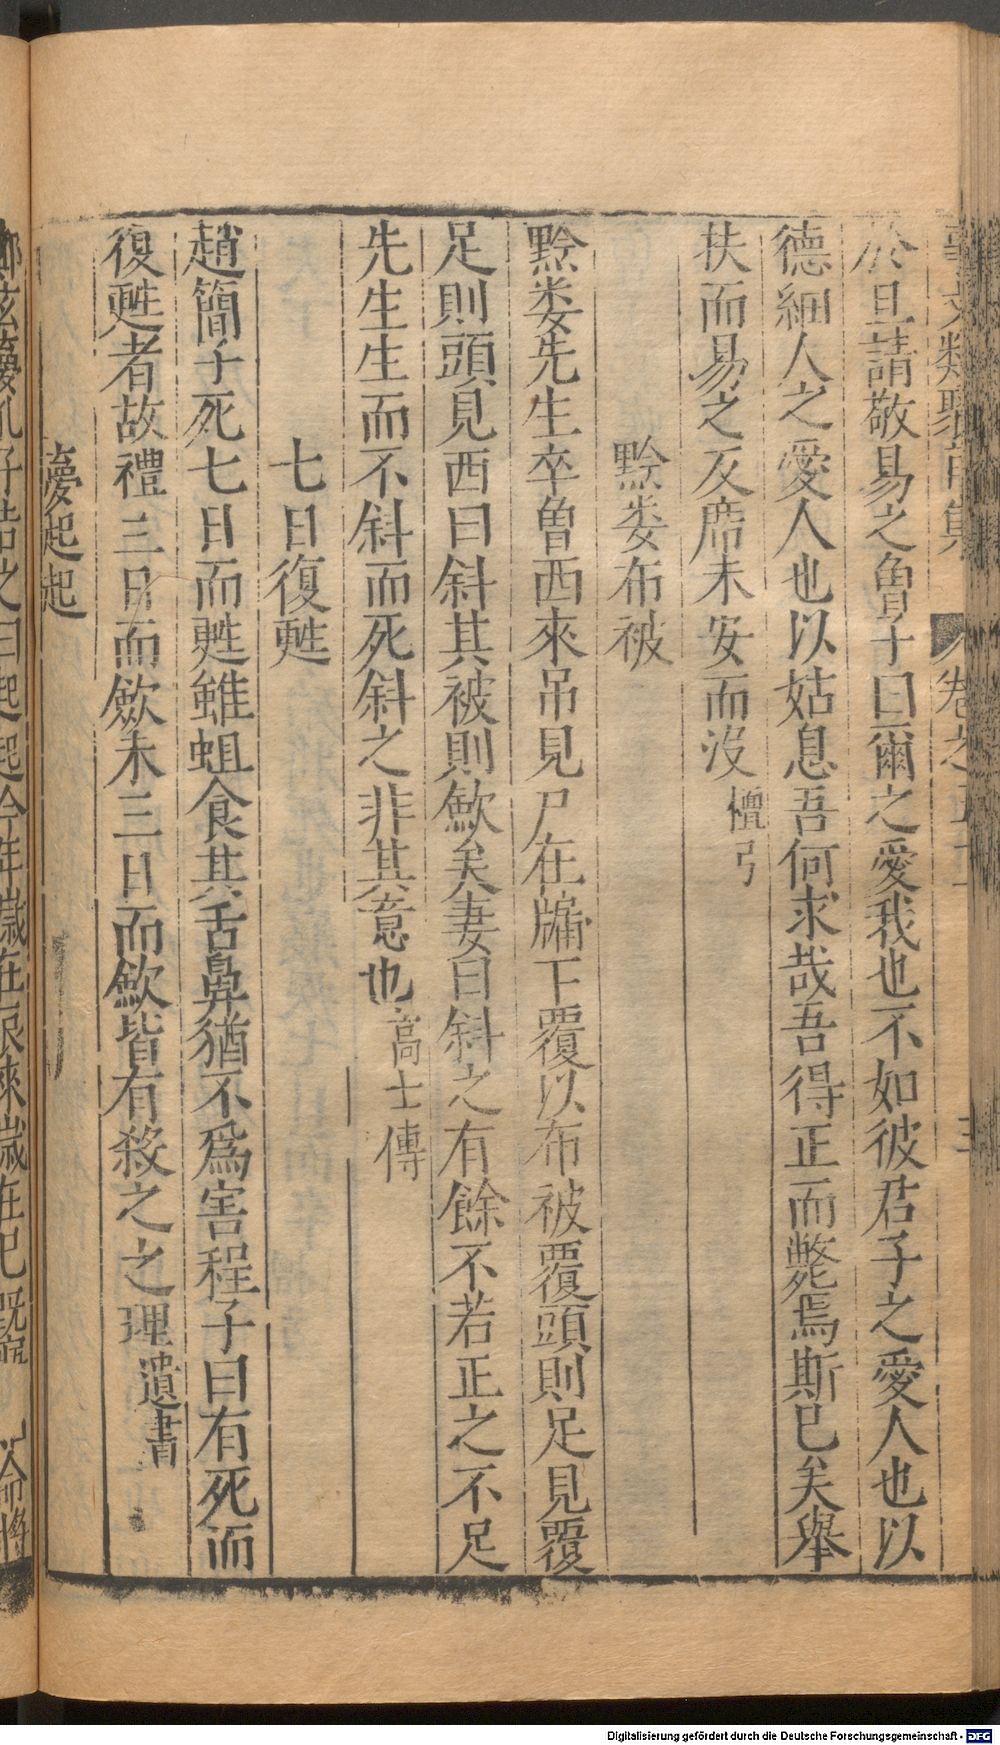 於旦請敬易之魯子曰爾之愛我也不如彼君子之愛人也以
德細人之愛人也以姑息吾何求哉吾得正而斃焉斯已矣舉
扶而易之反席未安而沒檀弓
黔娄布被
黔娄先生卒曾西來吊見尸在牖下覆以布被覆頭則足見覆
足則頭見西曰斜其被則歛矣妻曰斜之有餘不若正之不足
先生生而不斜而死斜之非其意也高士傳
七日復甦
趙簡子死七日而甦雖蛆食其舌鼻猶不爲害程子曰有死而
復甦者故禮三日而歛未三日而歛皆有殺之之理遺書
夢起起
Digitalisierung gefördert durch die Deutsche Forschungsgemeinschaft - DFG